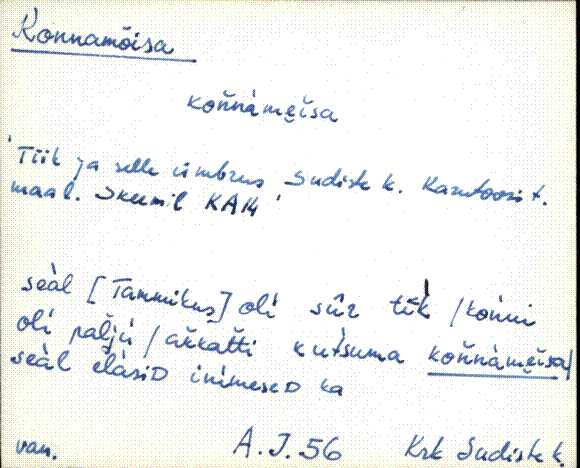 Konnamõisa
koňnàmẹĭsa
'Tiik ja selle ümbrus Sudiste k. Kasutoosi t.
maal. Skeemil KA14'
seàl [Tammikus] oli sûr tîk / końni
oli paĺjù / akkatti kutsuma koňnàmẹĭsa /
seàl elàsiD inimeseD ka
van. A.J. 56 Krk Sudiste k.